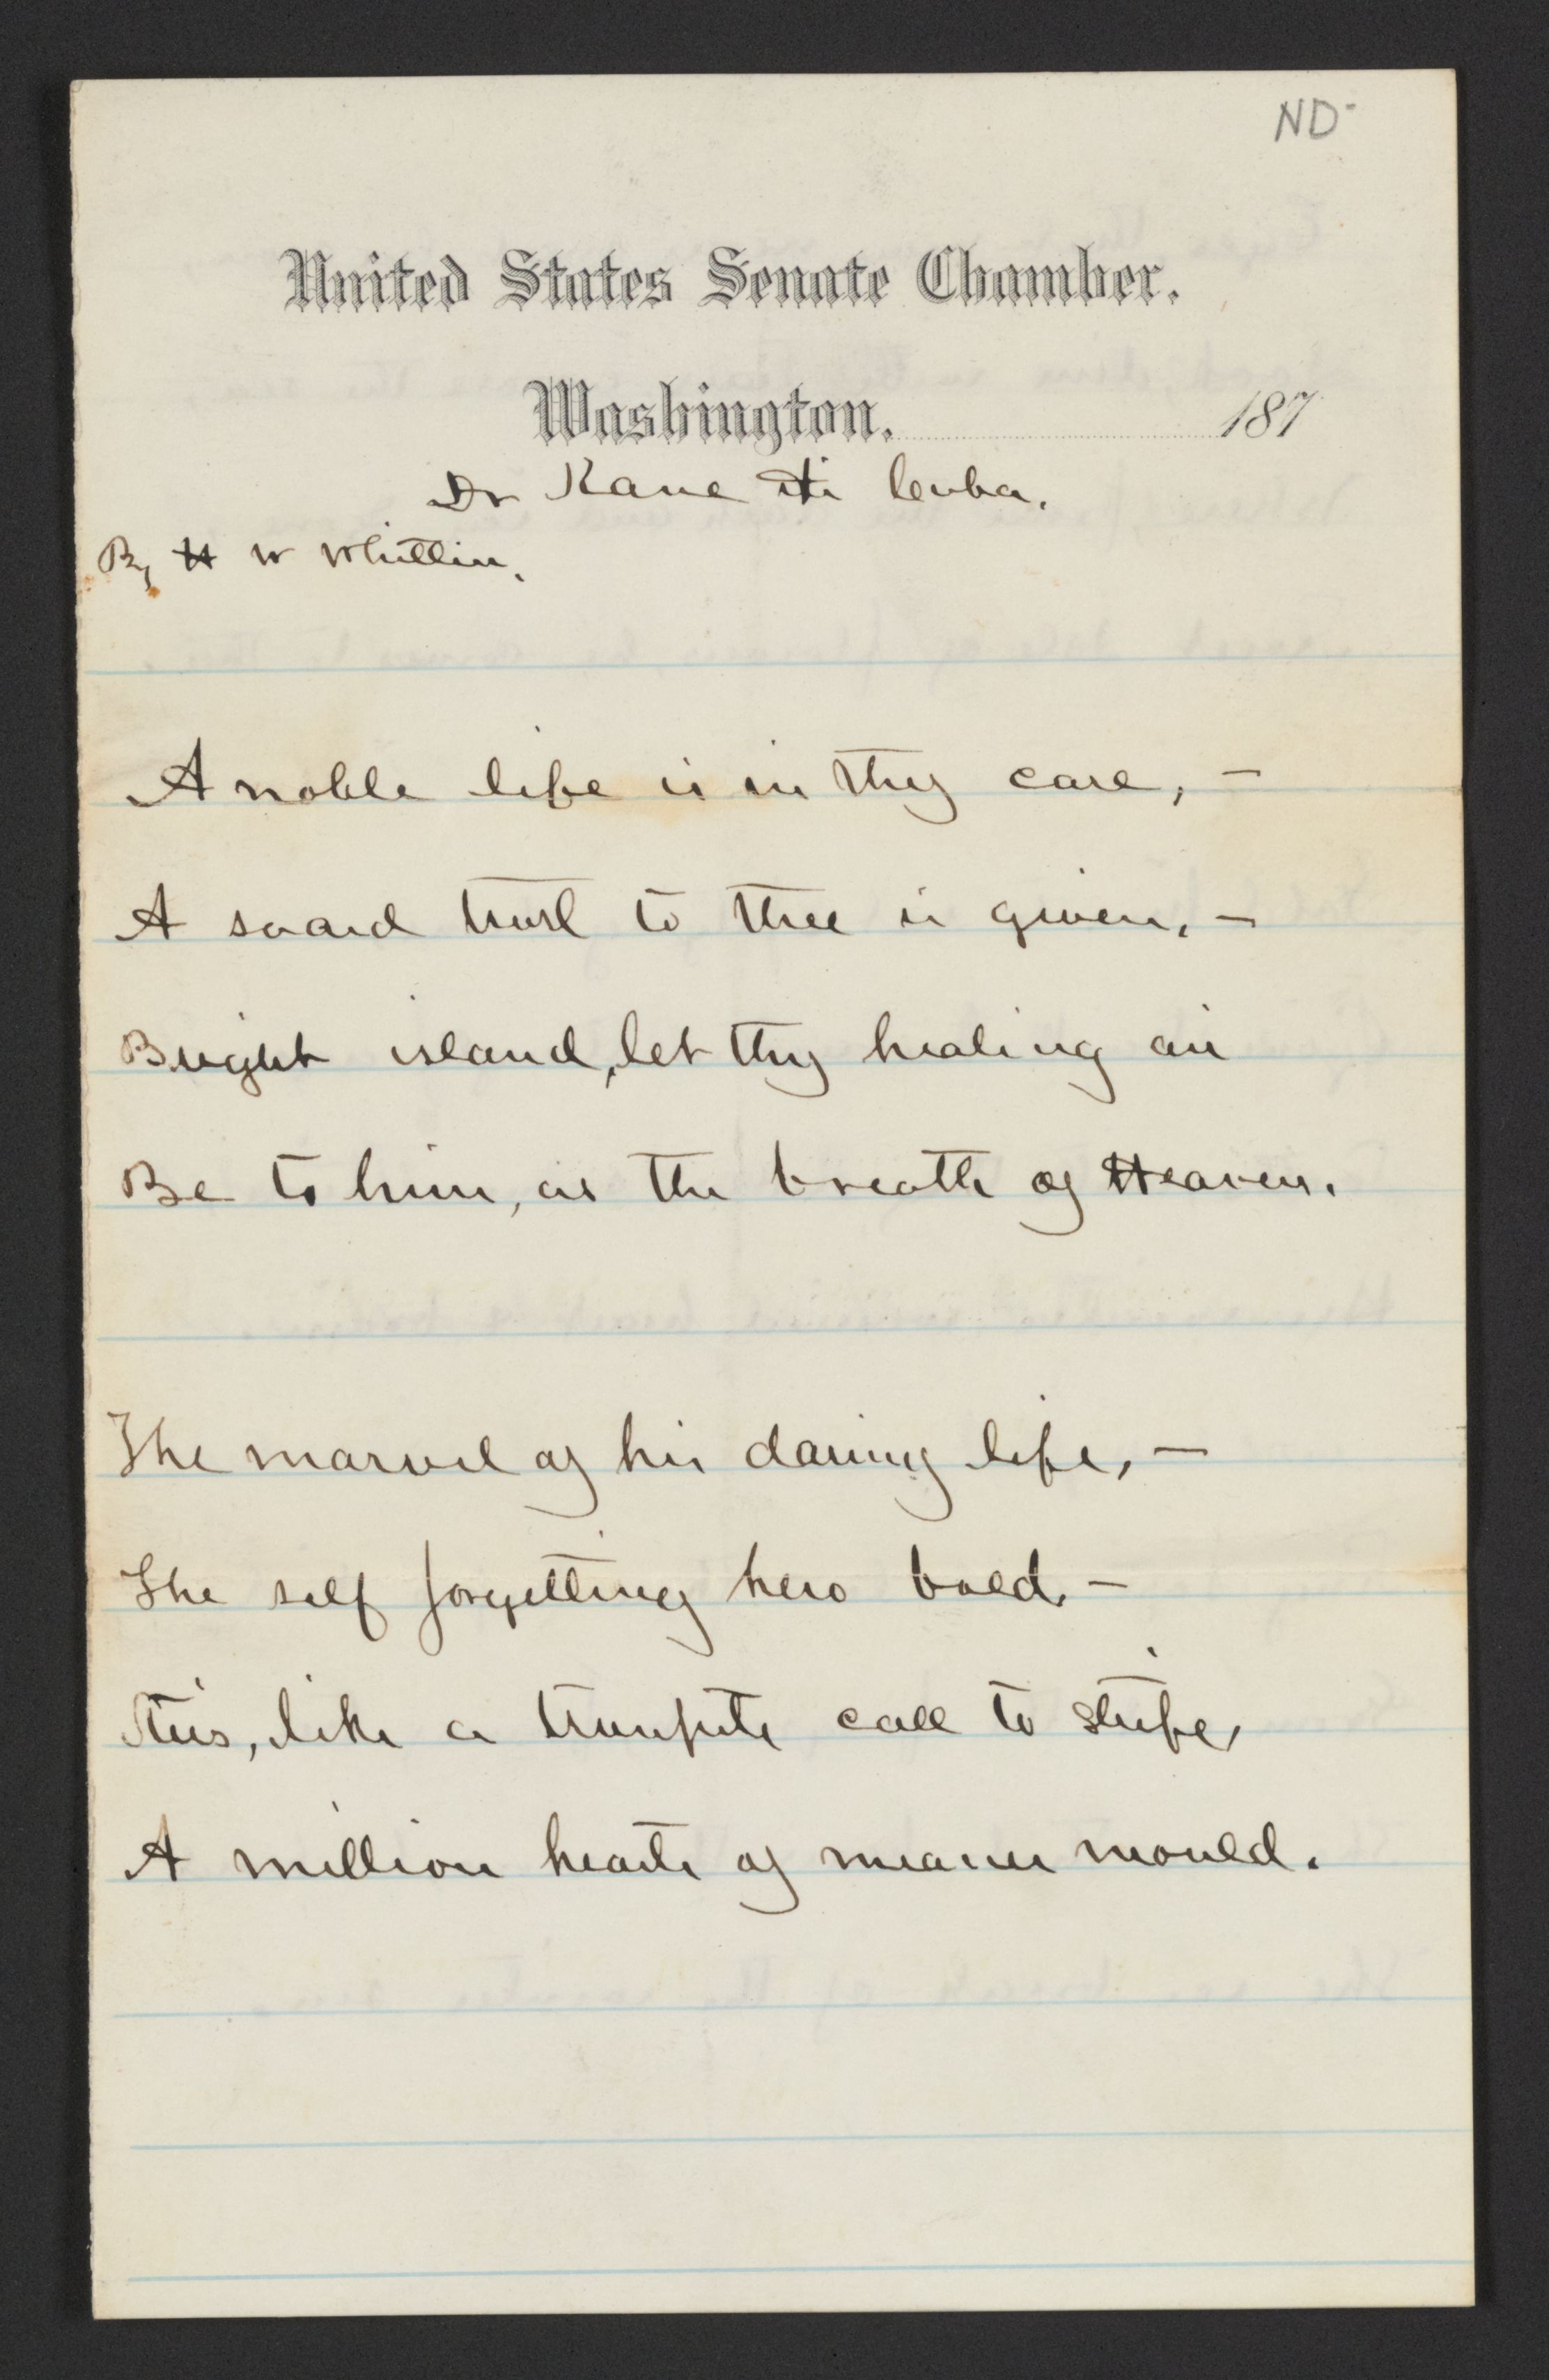 ND-
United States Senate Chamber.
Washington. 187
Dr Kane in Cuba.
By H W Whittier.
A noble life is in thy care, -
A sacred trust to thee is given, -
Bright island, let thy healing air
Be to him, as the breath of Heaven.
The marvel of his daring life, -
The self forgetting hero bold, -
Stirs, like a trumpets call to strife,
A million hearts of meaner mould.